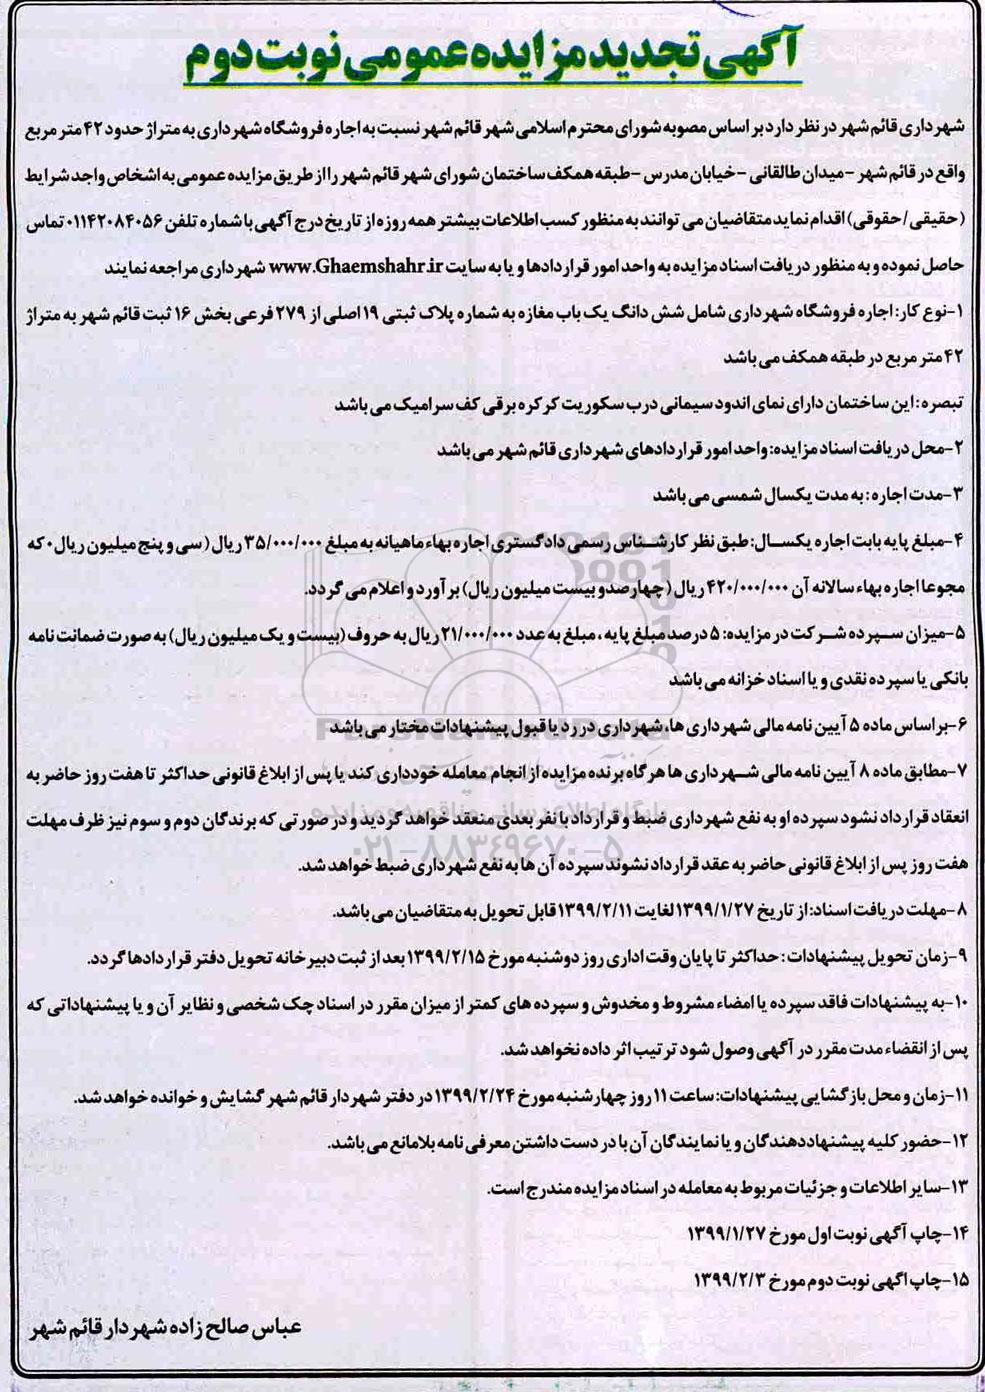 آگهی تجدید مزایده عمومی نوبت دوم
شهرداری قائم شهر در نظر دارد بر اساس مصوبه شورای محترم اسلامی شهر قائم شهر نسبت به اجاره فروشگاه شهرداری به متراژ حدود ۴۲ متر مربع
واقع در قائم شهر -میدان طالقانی -خیابان مدرس -طبقه همکف ساختمان شورای شهر قائم شهر را از طریق مزایده عمومی به اشخاص واجد شرایط
(حقیقی / حقوقی) اقدام نماید متقاضیان می توانند به منظور کسب اطلاعات بیشتر همه روزه از تاریخ درج آگهی با شماره تلفن ۰۱۱۴۲۰۸۴۰۵۶ تماس
حاصل نموده و به منظور دریافت اسناد مزایده به واحد امور قراردادها و یا به سایت www.Ghaemshahr.ir شهرداری مراجعه نمایند
۱-نوع کار: اجاره فروشگاه شهرداری شامل شش دانگ یک باب مغازه به شماره پلاک ثبتی ۱۹ اصلی از ۲۷۹ فرعی بخش ۱۶ ثبت قائم شهر به متراژ
۴۲ متر مربع در طبقه همکف می باشد
تبصره: این ساختمان دارای نمای اندود سیمانی درب سکوریت کرکره برقی کف سرامیک می باشد
۲-محل دریافت اسناد مزایده: واحد امور قراردادهای شهرداری قائم شهر می باشد
۳-مدت اجاره: به مدت یکسال شمسی می باشد
۴-مبلغ پایه بابت اجاره یکسال: طبق نظر کارشناس رسمی دادگستری اجاره بهاء ماهیانه به مبلغ ۳۵/۰۰۰/۰۰۰ ریال (سی و پنج میلیون ریال۰ که
مجوعا اجاره بهاء سالانه آن ۴۲۰/۰۰۰/۰۰۰ ریال (چهارصدو بیست میلیون ریال) بر آورد و اعلام می گردد.
۵-میزان سپرده شرکت در مزایده: ۵ درصد مبلغ پایه، مبلغ به عدد ۲۱/۰۰۰/۰۰۰ ریال به حروف (بیست و یک میلیون ریال) به صورت ضمانت نامه
بانکی یا سپرده نقدی و یا اسناد خزانه می باشد
۶-بر اساس ماده ۵ آیین نامه مالی شهرداری ها، شهرداری در رد یا قبول پیشنهادات مختار می باشد
۷-مطابق ماده ۸ آیین نامه مالی شهرداری ها هر گاه برنده مزایده از انجام معامله خودداری کند یا پس از ابلاغ قانونی حداکثر تا هفت روز حاضر به
انعقاد قرارداد نشود سپرده او به نفع شهرداری ضبط و قرارداد با نفر بعدی منعقد خواهد گردید و در صورتی که برندگان دوم و سوم نیز ظرف مهلت
هفت روز پس از ابلاغ قانونی حاضر به عقد قرارداد نشوند سپرده آن ها به نفع شهرداری ضبط خواهد شد.
۸-مهلت دریافت اسناد: از تاریخ ۱۳۹۹/۱/۲۷ لغایت ۱۳۹۹/۲/۱۱ قابل تحویل به متقاضیان می باشد.
۹-زمان تحویل پیشنهادات: حداکثر تا پایان وقت اداری روز دوشنبه مورخ ۱۳۹۹/۲/۱۵ بعد از ثبت دبیرخانه تحویل دفتر قراردادها گردد.
۱۰-به پیشنهادات فاقد سپرده یا امضاء مشروط و مخدوش و سپرده های کمتر از میزان مقرر در اسناد چک شخصی و نظایر آن و یا پیشنهاداتی که
پس از انقضاء مدت مقرر در آگهی وصول شود ترتیب اثر داده نخواهد شد.
۱۱-زمان و محل بازگشایی پیشنهادات: ساعت ۱۱ روز چهارشنبه مورخ ۱۳۹۹/۲/۲۴ در دفتر شهردار قائم شهر گشایش و خوانده خواهد شد.
۱۲-حضور کلیه پیشنهاددهندگان و یا نمایندگان آن با در دست داشتن معرفی نامه بلامانع می باشد.
۱۳-سایر اطلاعات و جزئیات مربوط به معامله در اسناد مزایده مندرج است.
۱۴-چاپ آگهی نوبت اول مورخ ۱۳۹۹/۱/۲۷
۱۵-چاپ اگهی نوبت دوم مورخ ۱۳۹۹/۲/۳
عباس صالح زاده شهردار قائم شهر
پایگاه اطلاع رسانی مناقصه و مزایده
۰۲۱-۸۸۳۴۹۶۷۰-۵